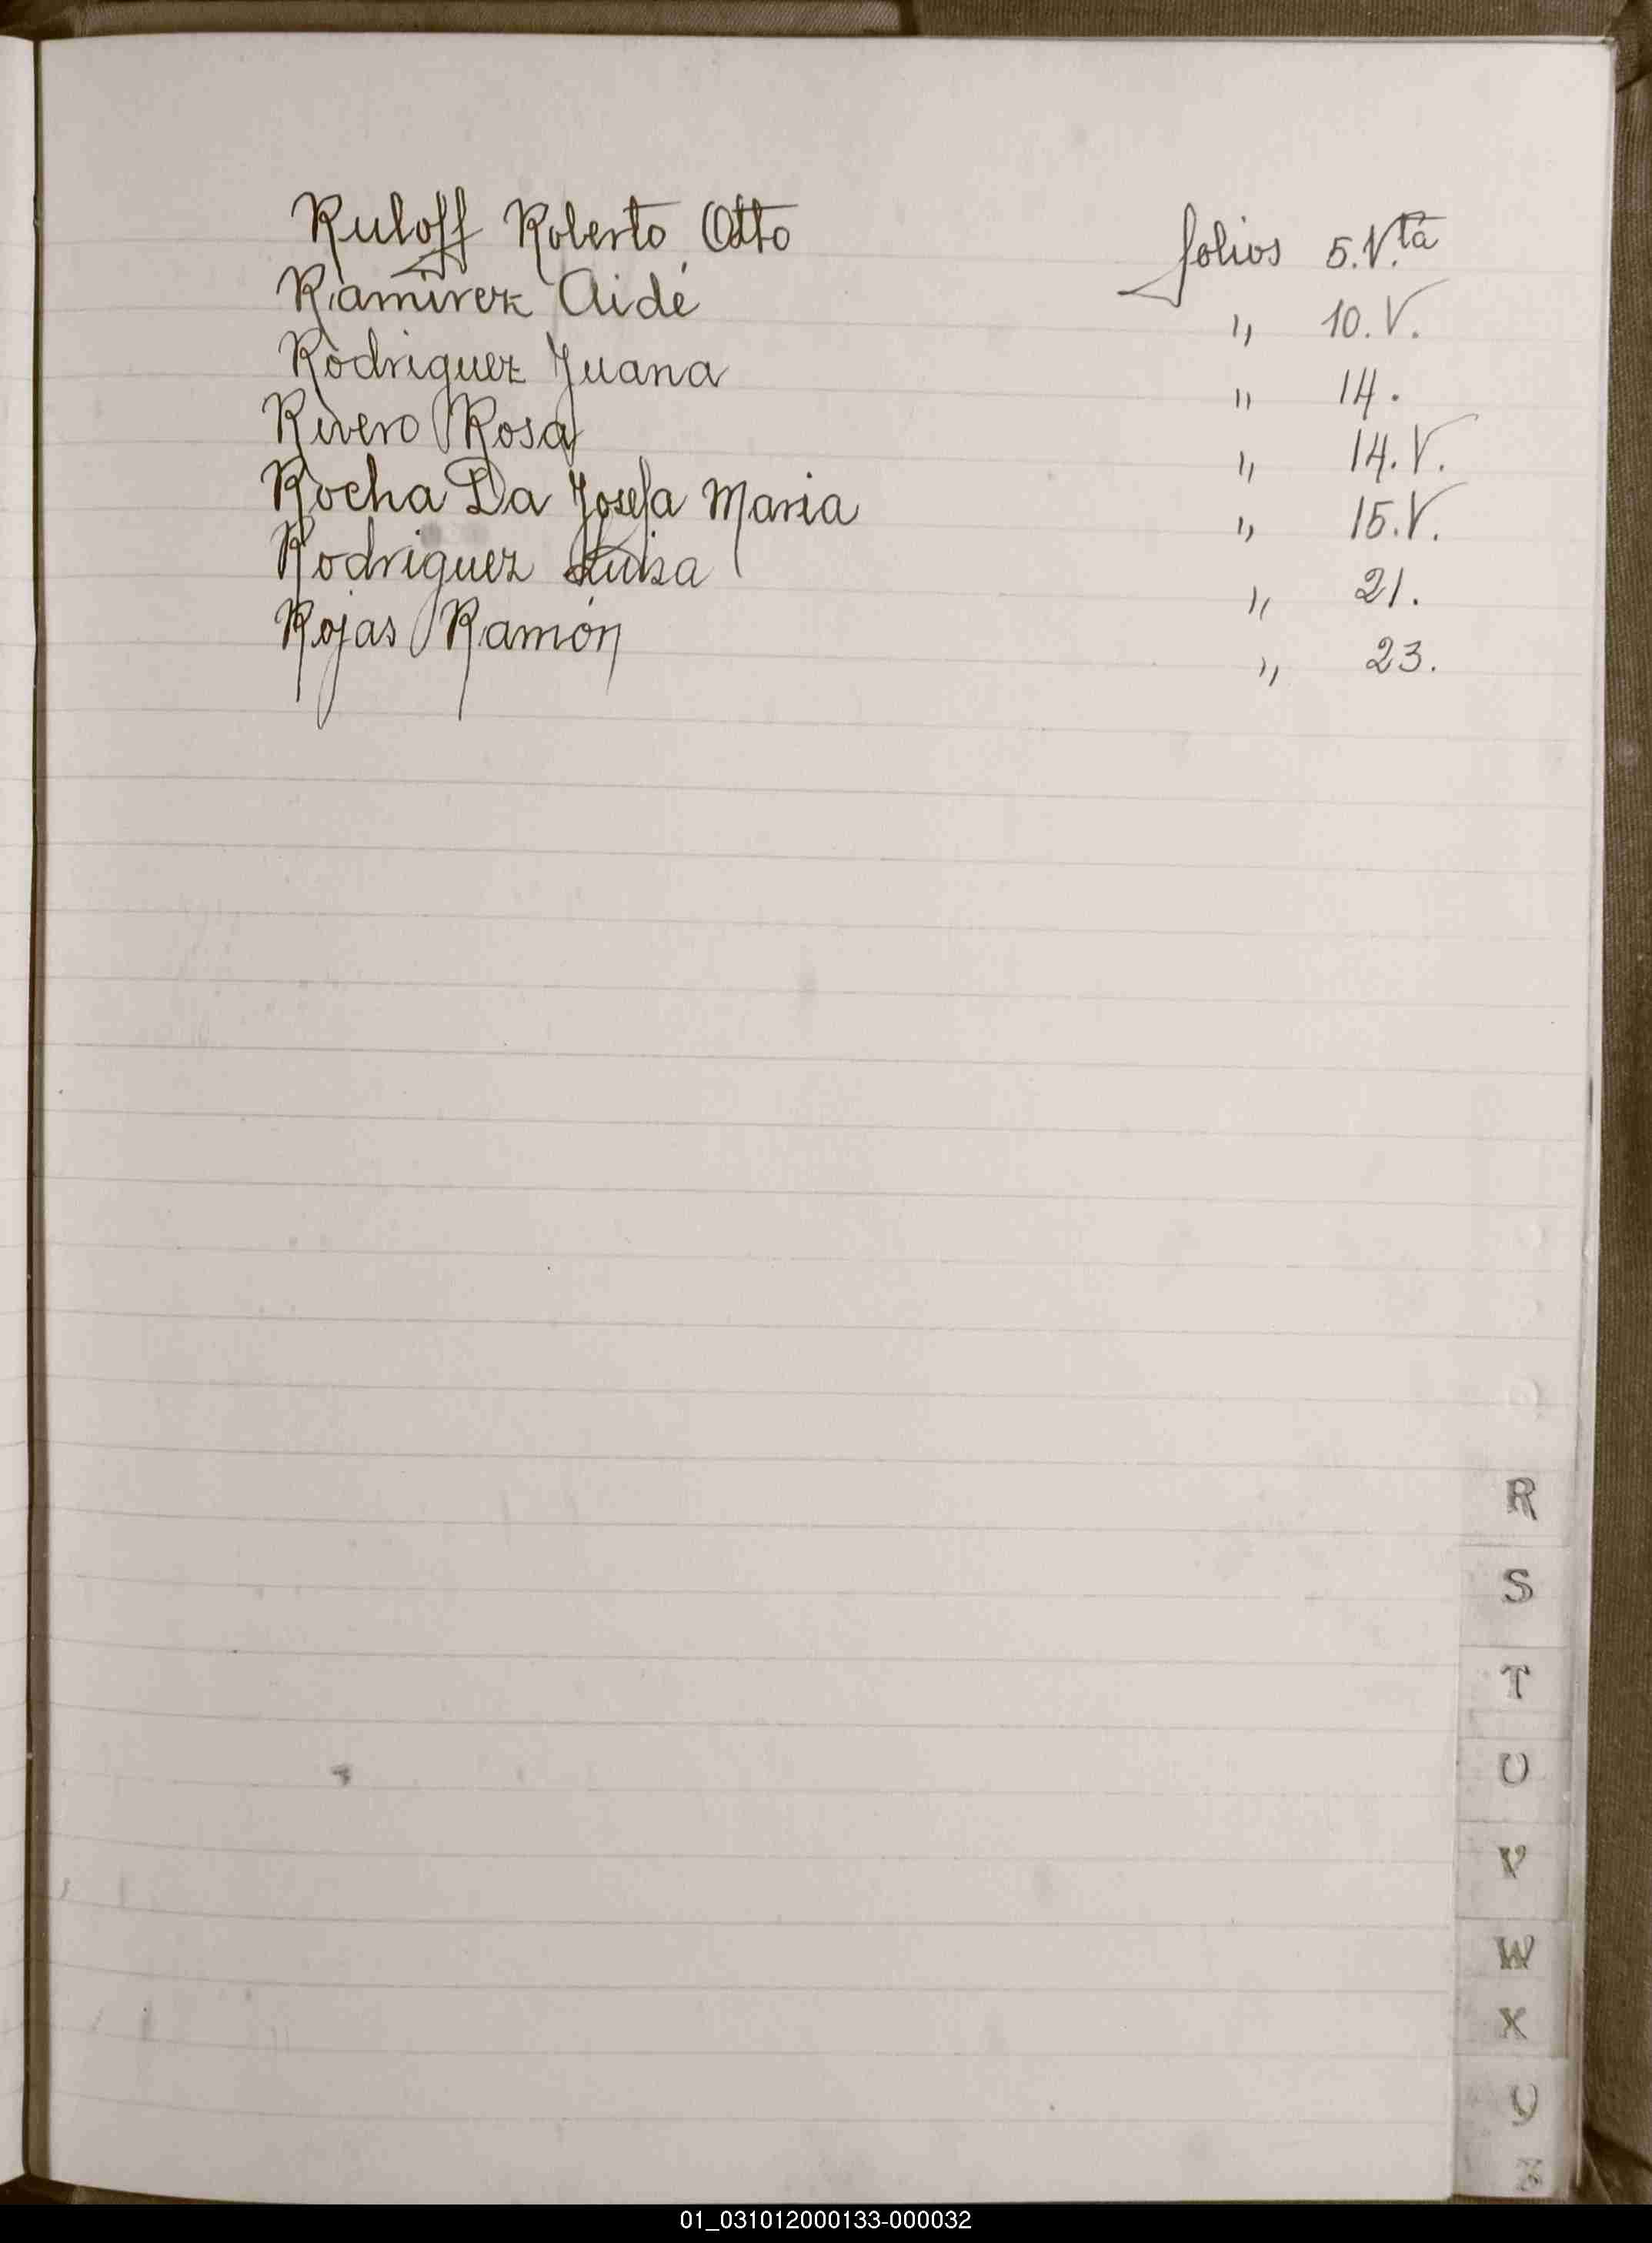 Ruloff Roberto Otto folios 5.V.ta
Ramirez Aidé " 10.V.
Rodriguez Juana " 14.
Rivero Rosa " 14.V.
Rocha Da Josefa Maria " 15.V.
Rodriguez Luisa " 21.
Rojas Ramón " 23.
R
S
T
U
V
W
X
Y
Z
01_031012000133-000032